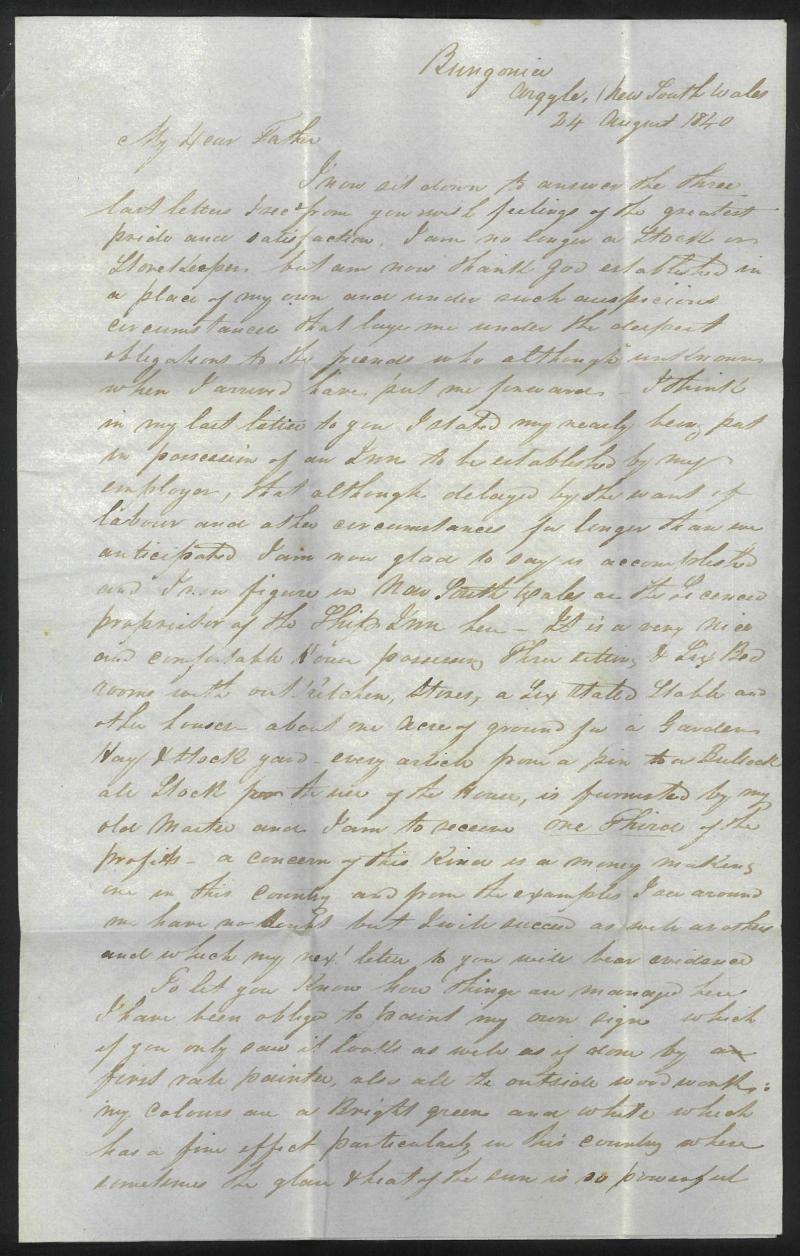 Bungonia
Argyle, New South Wales
24 August 1840
My Dear Father
I now sit down to answer the three
last letters I recd from you with feelings of the greatest
pride and satisfaction. I am no longer a Stock or
Storekeeper but am now thank God established in
a place of my own and under such auspicious
circumstances that lays me under the deepest
obligations to the friends who although unknown
when I arrived have put me forward – I think
in my last letter to you I stated my nearly being put
in possession of an Inn to be established by my
employer, that although delayed by the want of
labour and other circumstances far longer than we
anticipated I am now glad to say is accomplished
and I now figure in New South Wales as the Licenced
proprietor of the Ship Inn here – It is a very nice
and comfortable House possessing Three sitting & Six Bed
rooms with out Kitchen, Stores, a Six Stalled Stable and
other houses about one Acre of ground for a Garden
Hay & Stock yard – every article from a pin to a Bullock
all Stock for the use of the House, is furnished by my
old Master and I am to receive One Third of the
profits – a concern of this Kind is a money making
one in this country and from the examples I see around
me have no doubt but I will succeed as well as others
and which my next letter to you will bear evidence
To let you Know how things are managed here
I have been obliged to paint my own sign which
if you only saw it looks as well as if done by a
first rate painter, also all the outside wood work:
my colours are a Bright green and white which
has a fine effect particularly in this country where
sometimes the glare & heat of the sun is so powerful